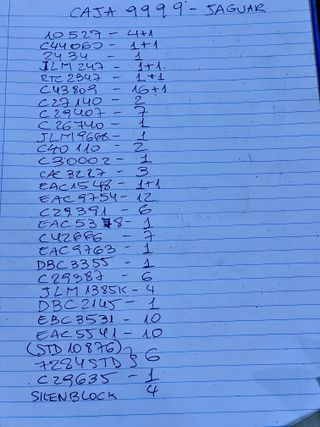 CAJA 9999 - JAGUAR
10527 - 4+1
C44060 - 1+1
2434 - 1
JLM247 - 1+1
RTC2347 - 1+1
C43809 - 16+1
C27140 - 2
C29407 - 7
C26740 - 1
JLM9688 - 1
C40110 - 2
C30002 - 1
CAC3227 - 3
EAC1548 - 1+1
EAC9754 - 12
C29391 - 6
EAC5378 - 1
C42666 - 7
EAC9763 - 1
DBC3355 - 1
C29387 - 6
JLM1385K - 4
DBC2145 - 1
EBC3531 - 10
EAC5541 - 10
(STD10876) } 6
72845TD
C29635 - 1
SILENBLOCK 4